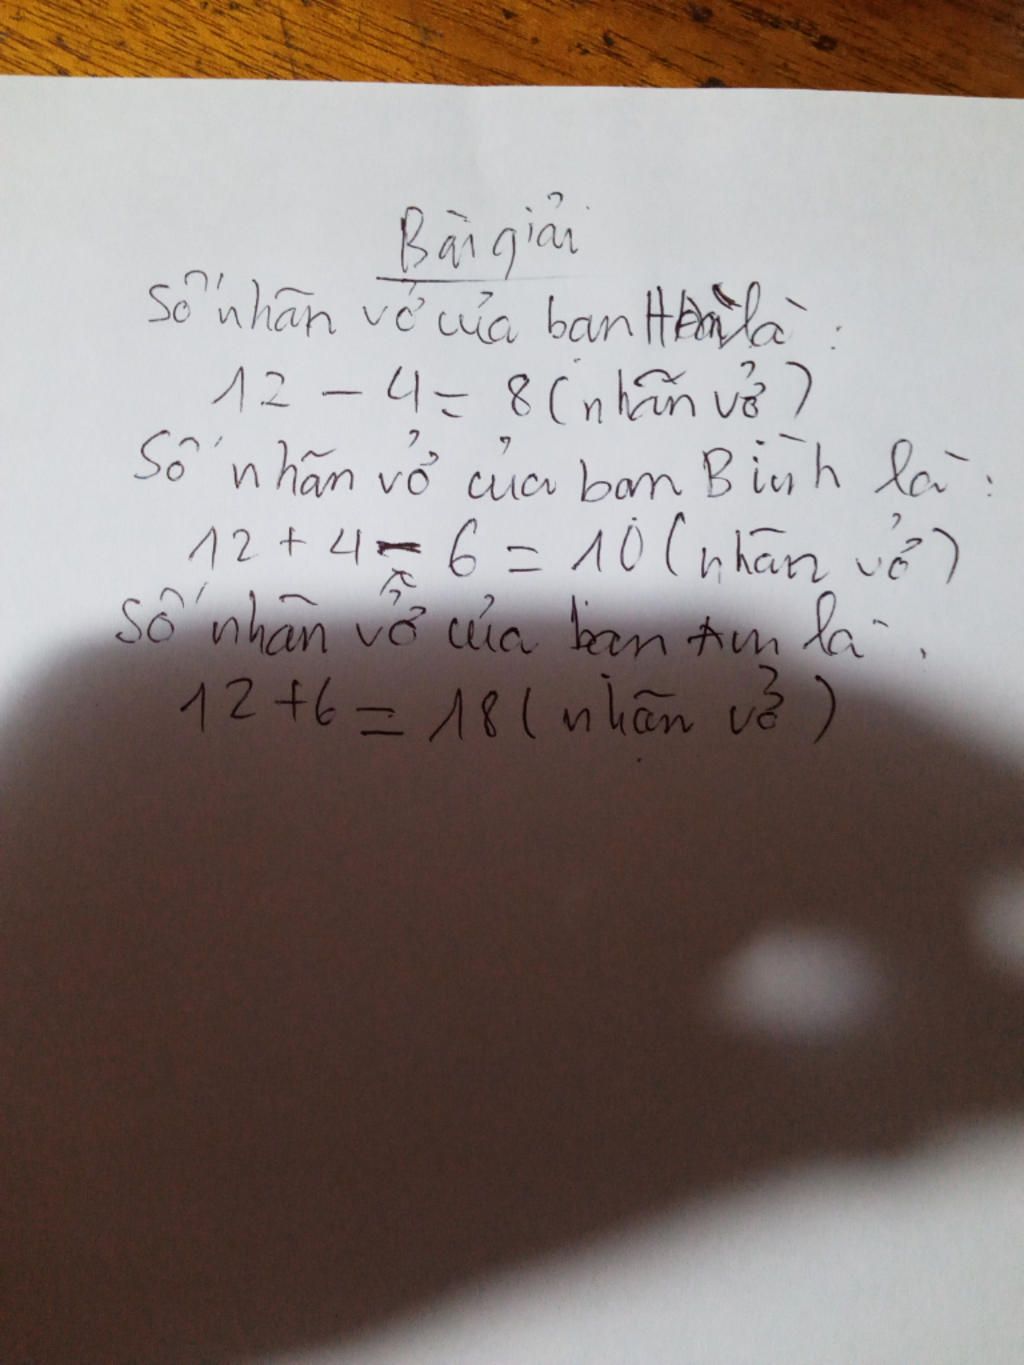 Bài giải
Số nhãn vở của bạn là:
12 - 4 = 8 (nhãn vở)
Số nhãn vở của bạn Bình là:
12 + 4 - 6 = 10 (nhãn vở)
Số nhãn vở của bạn là:
12 + 6 = 18 (nhãn vở)